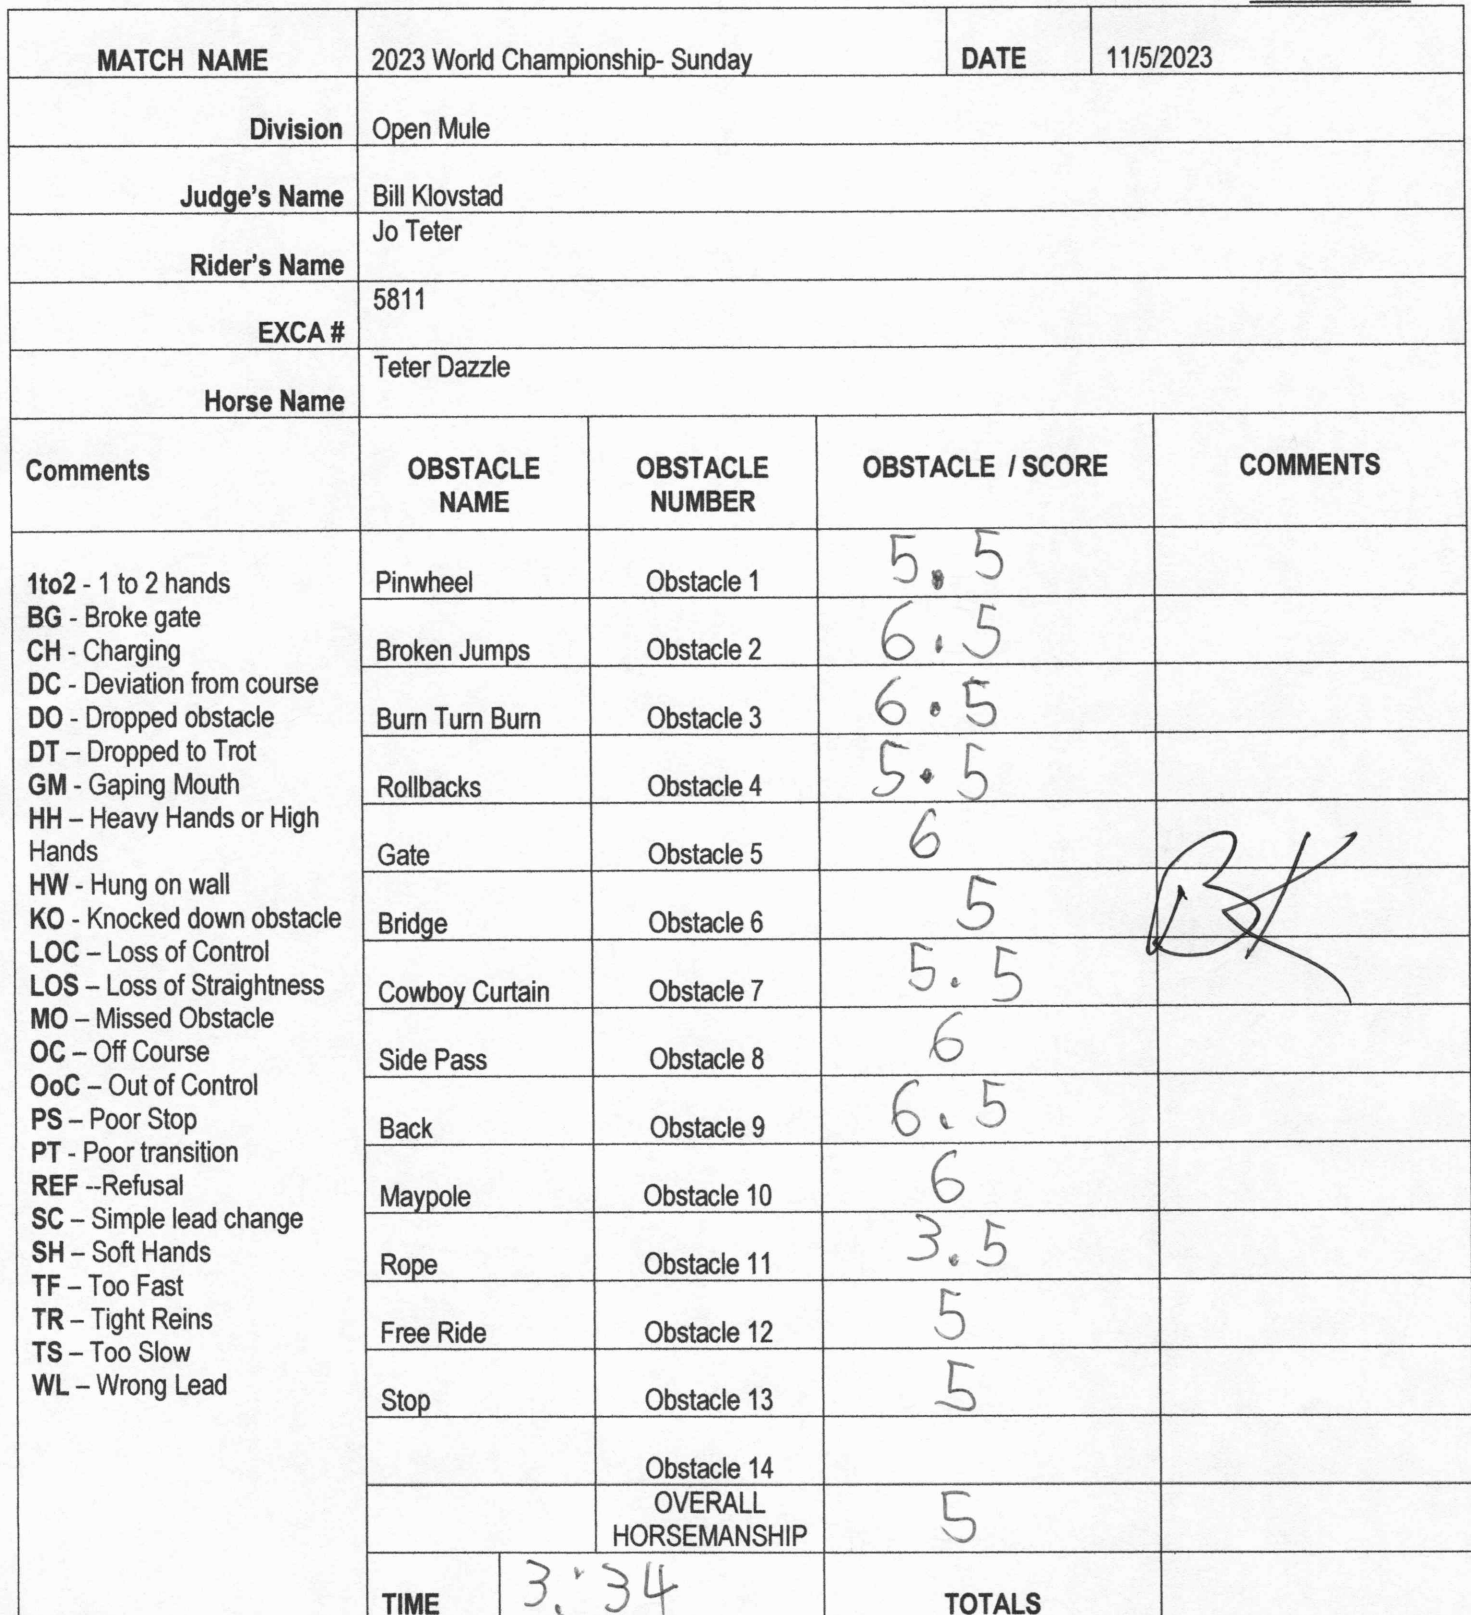 MATCH NAME 2023 World Championship- Sunday DATE 11/5/2023
Division Open Mule
Judge's Name Bill Klovstad
Jo Teter
Rider's Name
5811
EXCA #
Teter Dazzle
Horse Name
Comments OBSTACLE NAME OBSTACLE NUMBER OBSTACLE / SCORE COMMENTS
1to2 - 1 to 2 hands
BG - Broke gate
CH - Charging
DC - Deviation from course
DO - Dropped obstacle
DT – Dropped to Trot
GM - Gaping Mouth
HH – Heavy Hands or High
Hands
HW - Hung on wall
KO - Knocked down obstacle
LOC – Loss of Control
LOS – Loss of Straightness
MO – Missed Obstacle
OC – Off Course
OoC – Out of Control
PS – Poor Stop
PT - Poor transition
REF --Refusal
SC – Simple lead change
SH – Soft Hands
TF – Too Fast
TR – Tight Reins
TS – Too Slow
WL – Wrong Lead
Pinwheel Obstacle 1 5.5
Broken Jumps Obstacle 2 6.5
Burn Turn Burn Obstacle 3 6.5
Rollbacks Obstacle 4 5.5
Gate Obstacle 5 6
Bridge Obstacle 6 5
Cowboy Curtain Obstacle 7 5.5
Side Pass Obstacle 8 6
Back Obstacle 9 6.5
Maypole Obstacle 10 6
Rope Obstacle 11 3.5
Free Ride Obstacle 12 5
Stop Obstacle 13 5
Obstacle 14
OVERALL
HORSEMANSHIP 5
TIME 3:34 TOTALS
BK